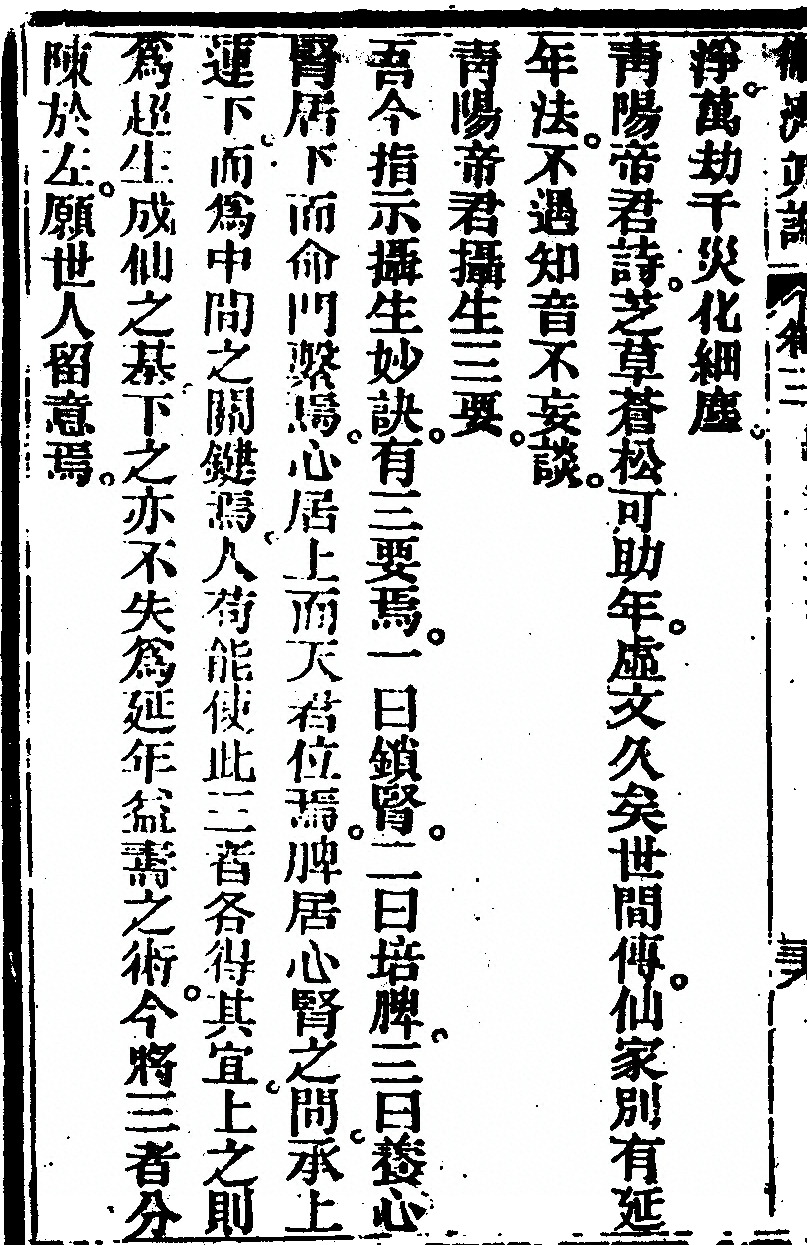 淨。萬劫千災化細塵。
青陽帝君詩。芝草蒼松可助年。虛文久矣世間傳。仙家別有延
年法。不遇知音不妄談。
青陽帝君攝生三要。
吾今指示攝生妙訣。有三要焉。一曰鎖腎。二曰培脾。三曰養心
腎居下而命門繫焉。心居上而天君位焉。脾居心腎之間。承上
運下。而爲中間之關鍵焉。人苟能使此三者各得其宜。上之則
爲超生成仙之基。下之亦不失爲延年益壽之術。今將三者分
陳於左。願世人留意焉。